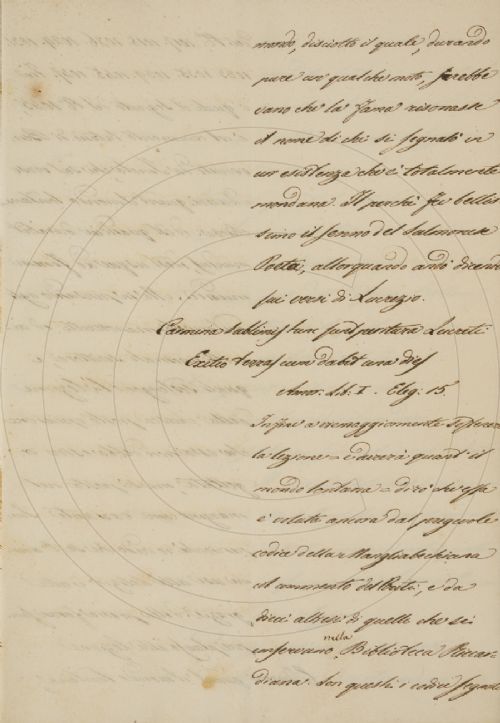 mondo, disciolto il quale, durando
pure un qualche moto, sarebbe
vano che la fama risonasse
il nome di chi si segnalò in
un'esistenza che è totalmente
mondana. Il perchè fu bellis
simo il senno del Salmonese
Poeta, allorquando andò dicendo
sui versi di Lucrezio.
Carmina sublimis tunc sunt peritura Lucreti
Exitio terras cum dabit una dies
Amor. Lib. I. Eleg. 15.
Infine a vremaggiamente difendere
la lezione = e durerà quant il
mondo lontana = dirò che essa
è voluta ancora dal pregevole
codice della Magliabechiana
col commento del Buti, e da
dieci altresì di quelli che si
conservano nella Biblioteca Riccar-
diana. Son questi i codici segnati